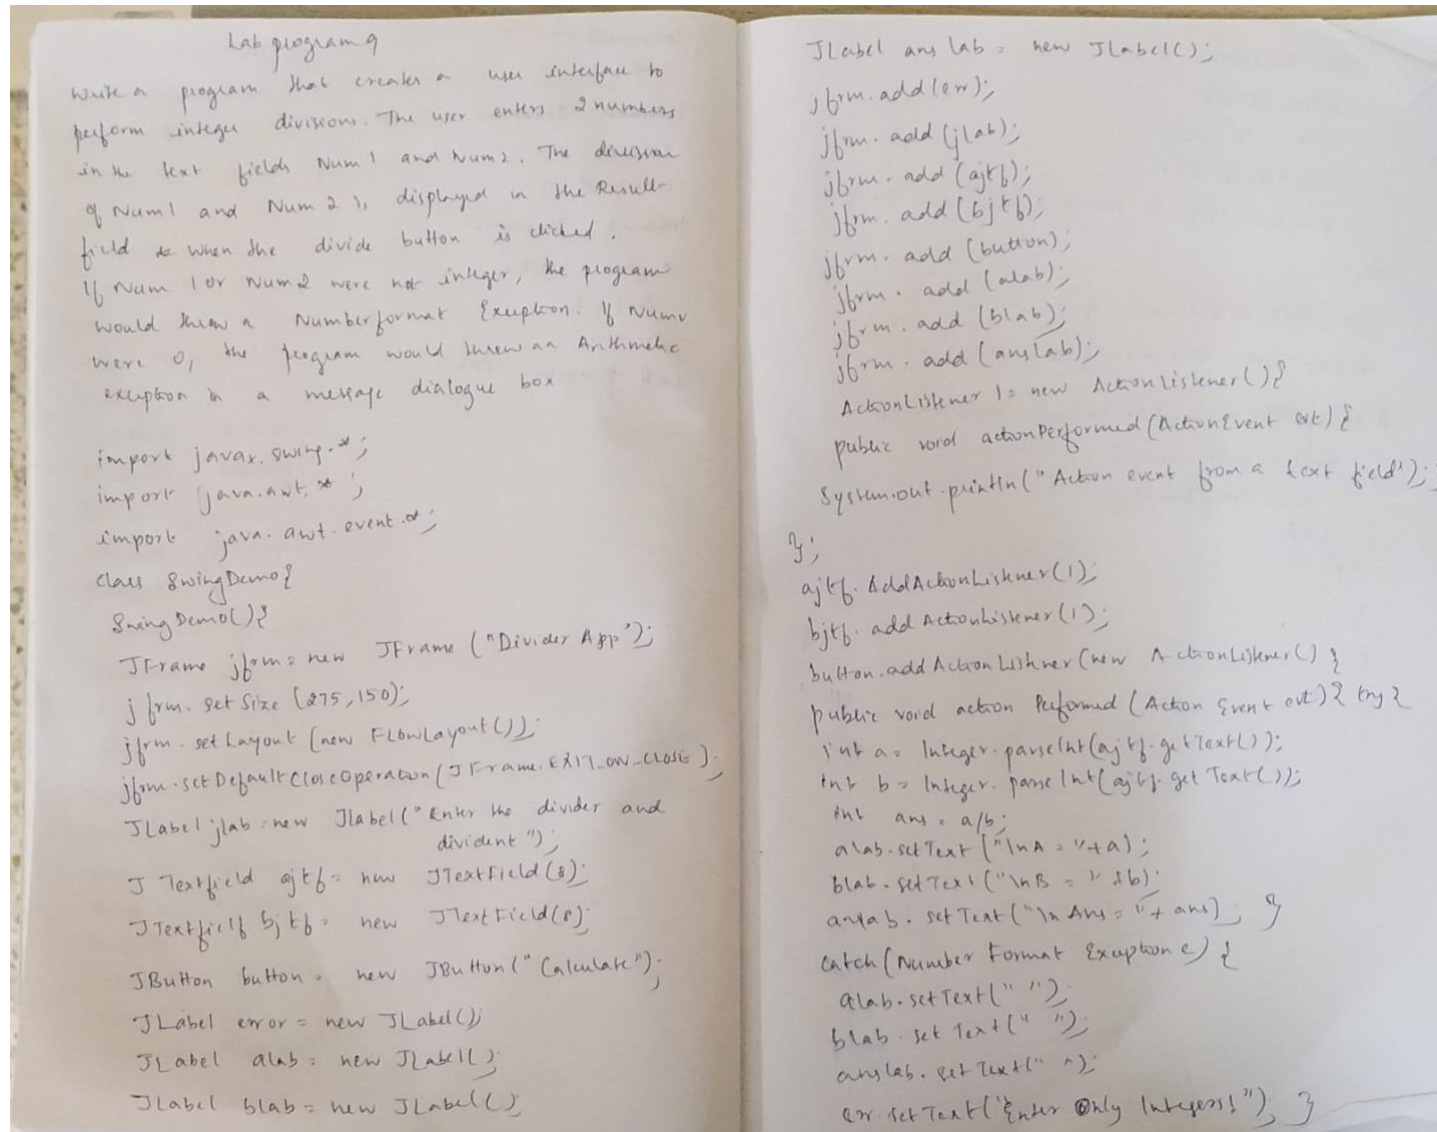 Lab program 9
Write a program that creates a user interface to
perform integer divisions. The user enters 2 numbers
in the text fields Num1 and Num2. The division
of Num1 and Num 2 is displayed in the Result
field when the divide button is clicked.
If Num 1 or Num2 were not integer, the program
would throw a Numberformat Exception. If Num
were 0, the program would throw an Arithmetic
exception in a message dialogue box
import javax.swing.*;
import java.awt.*;
import java.awt.event.*;
class SwingDemo{
SwingDemo(){
JFrame jfrm = new JFrame ("Divider App");
jfrm. set Size (275,150);
jfrm. setLayout (new FlowLayout());
jfrm.setDefaultCloseOperation(JFrame.EXIT_ON_CLOSE);
JLabel jlab = new Jlabel("Enter the divider and
divident");
J Textfield ajtf = new JTextField(8);
JTextfielf bjtf = new JTextField(8);
JButton button = new JButton("Calculate");
JLabel error = new JLabel();
JLabel alab = new JLabel();
JLabel blab = new JLabel();
JLabel ans lab = new JLabel();
jfrm.add(err);
jfrm. add (jlab);
jfrm. add (ajtf);
jfrm. add (bjtf);
jfrm. add (button);
jfrm. add (alab);
jfrm. add (blab);
jfrm. add (anslab);
ActionListener l = new ActionListener(){
public void actionPerformed(ActionEvent evt) {
System.out.println("Action event from a text field");
};
ajtf. AddActionListener(l);
bjtf. add ActionListener(l);
button.addActionListner(new ActionListener() {
public void action Performed (Action Event evt){ try{
int a = Integer.parseInt(ajtf.getText());
int b = Integer. parse Int(ajtf. get Text());
int ans = a/b;
alab.setText ("\nA = "+a);
blab.setText("\nB = "+b);
anlab. setText("\n Ans = "+ ans); }
catch(Number Format Exception e) {
alab.setText(" ");
blab. set Text(" ");
anslab. set Text(" ");
err.setText("Enter Only Integers!"); }